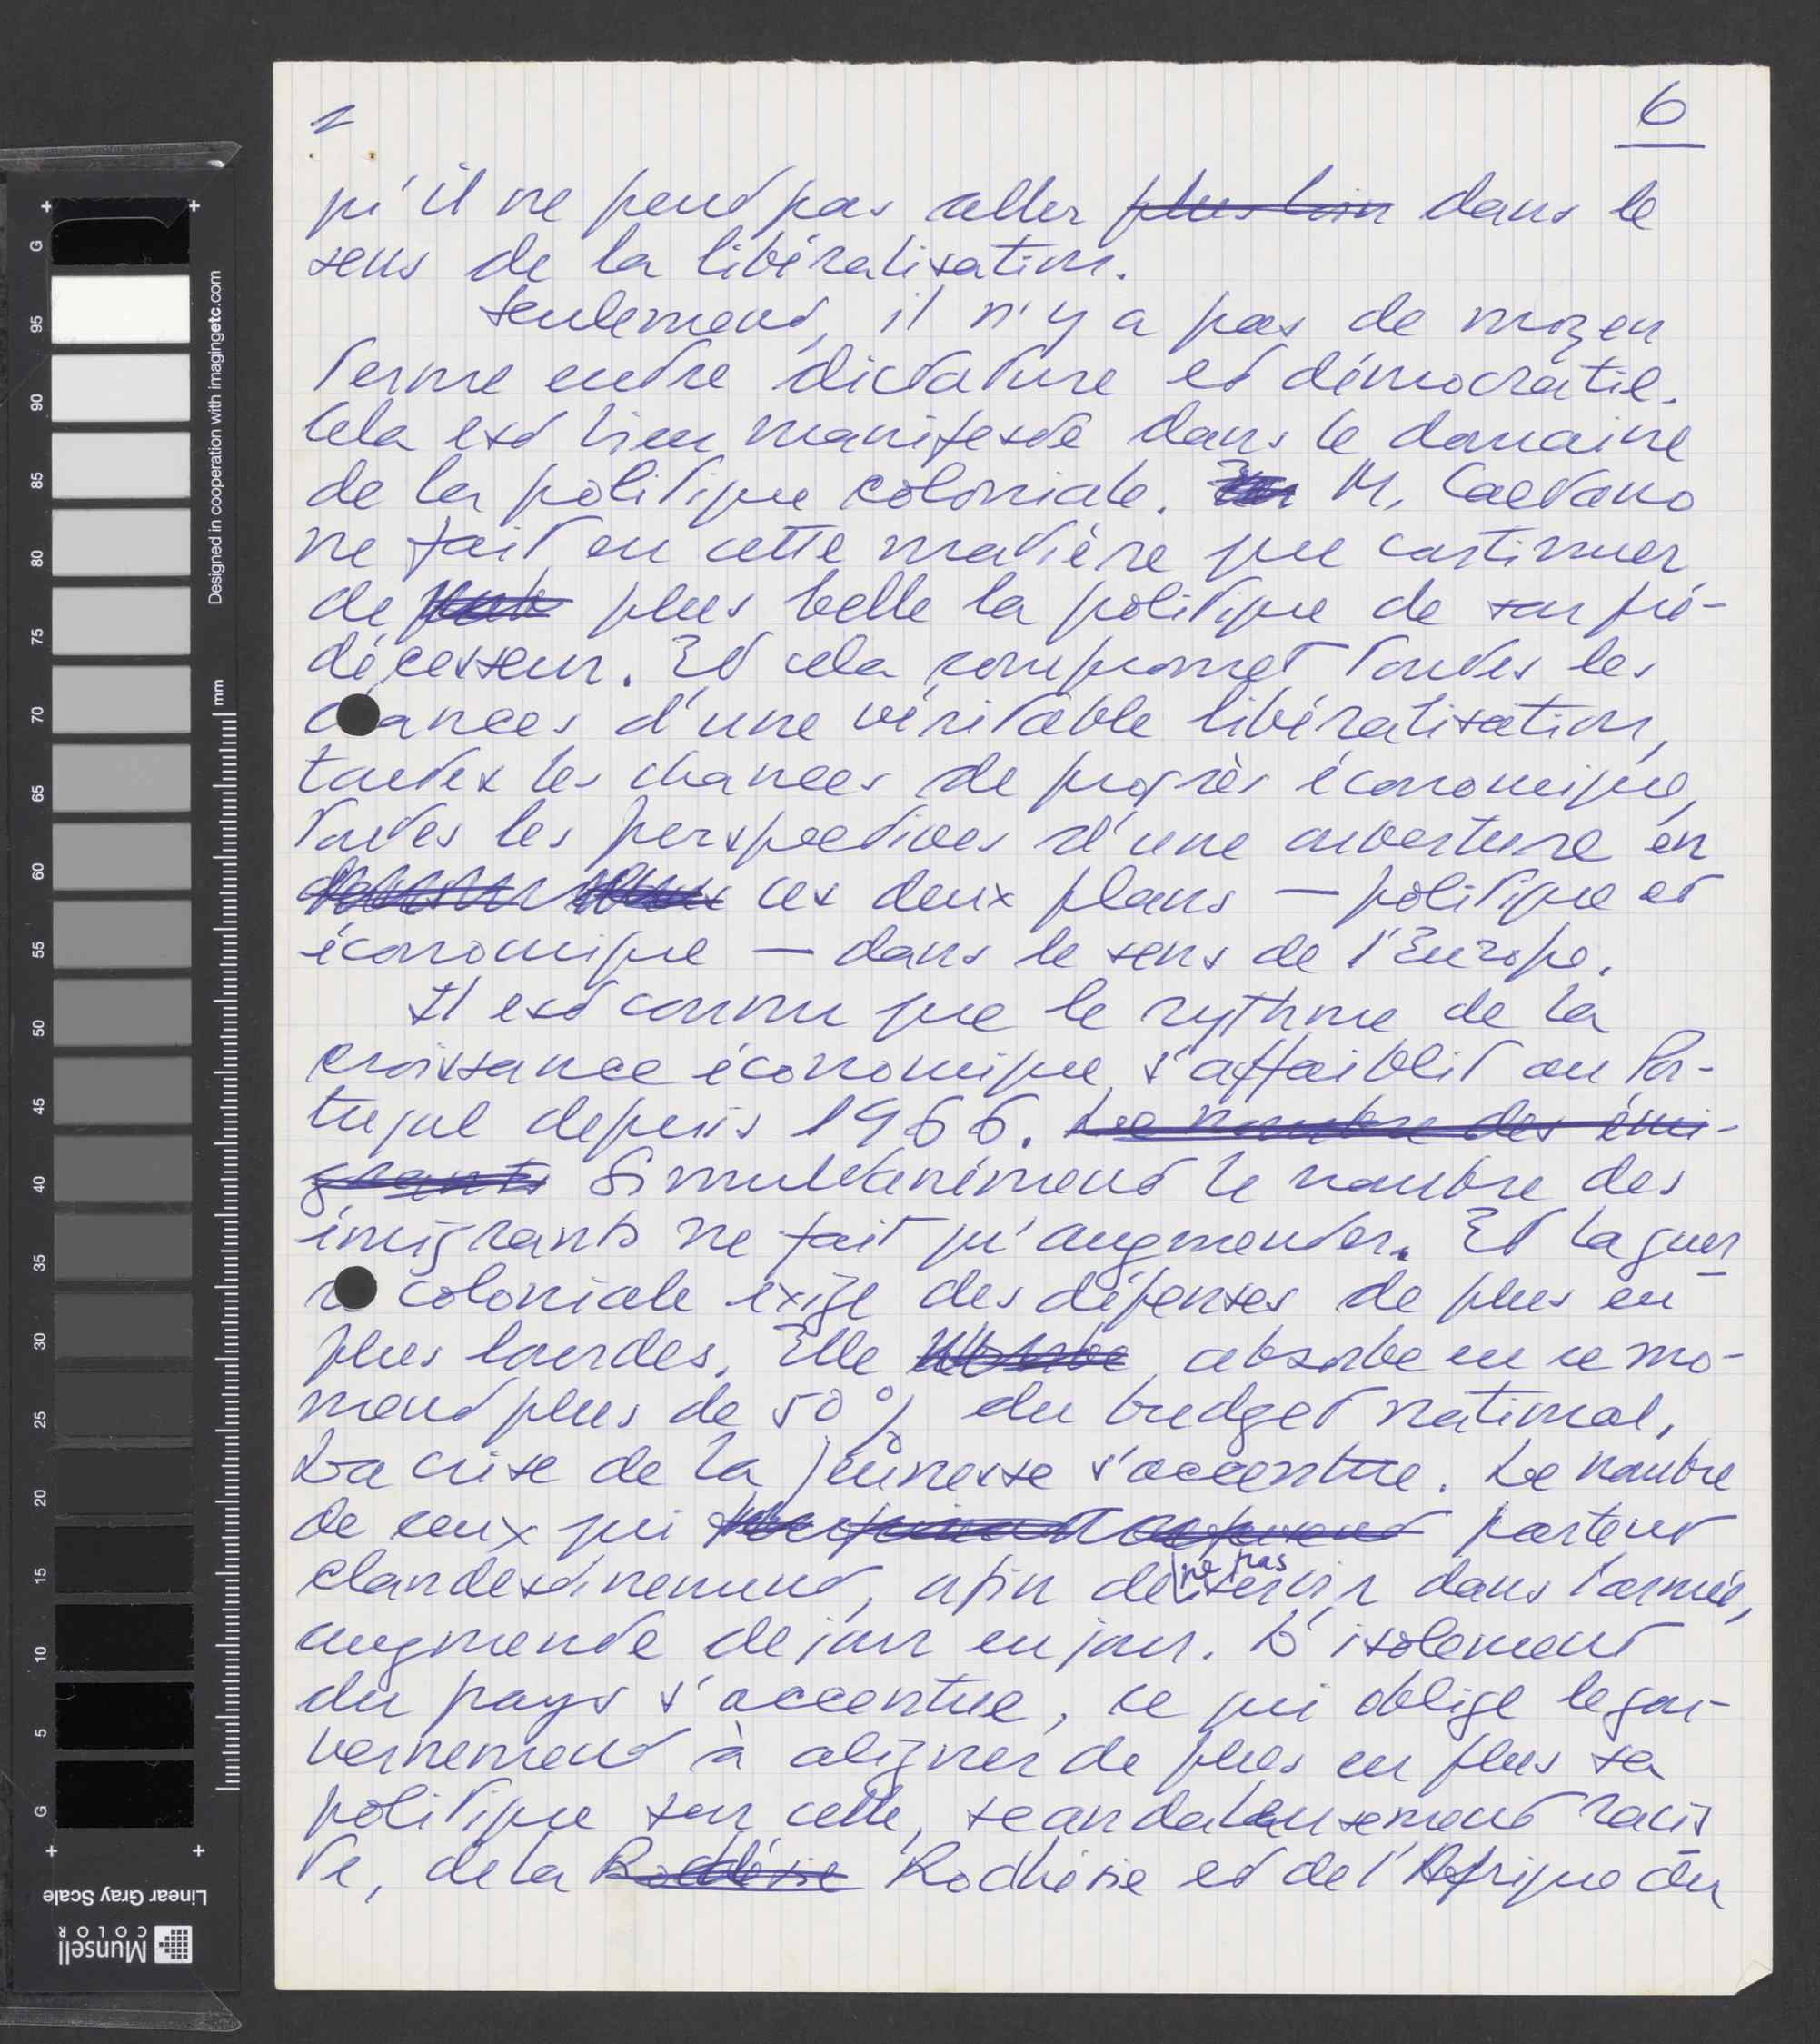 6
qu'il ne peut pas aller plus loin dans le
sens de la libéralisation.
Seulement, il n'y a pas de moyen
terme entre dictature et démocratie.
Cela est bien manifeste dans le domaine
de la politique coloniale. M. Caetano
ne fait en cette matière que continuer
de plus belle la politique de son pré-
décesseur. Et cela compromet toutes les
chances d'une véritable libéralisation,
toutes les chances de progrès économique,
toutes les perspectives d'une ouverture en
ces deux plans — politique et
économique — dans le sens de l'Europe.
Il est connu que le rythme de la
croissance économique s'affaiblit au Por-
tugal depuis 1966. Le nombre des émi-
grants Simultanément le nombre des
émigrants ne fait qu'augmenter. Et la guer
re coloniale exige des dépenses de plus en
plus lourdes. Elle absorbe en ce mo-
ment plus de 50% du budget national.
La crise de la jeunesse s'accentue. Le nombre
de ceux qui partent
clandestinement, afin de ne pas servir dans l'armée,
augmente de jour en jour. L'isolement
du pays s'accentue, ce qui oblige le gou-
vernement à aligner de plus en plus sa
politique sur celle, scandaleusement racis
te, de la Rodhésie Rodhésie et de l'Afrique du
Designed in cooperation with imagingetc.com
mm
G
95
90
85
80
75
70
65
60
55
50
45
40
35
30
25
20
15
10
5
G
Linear Gray Scale
Munsell
COLOR